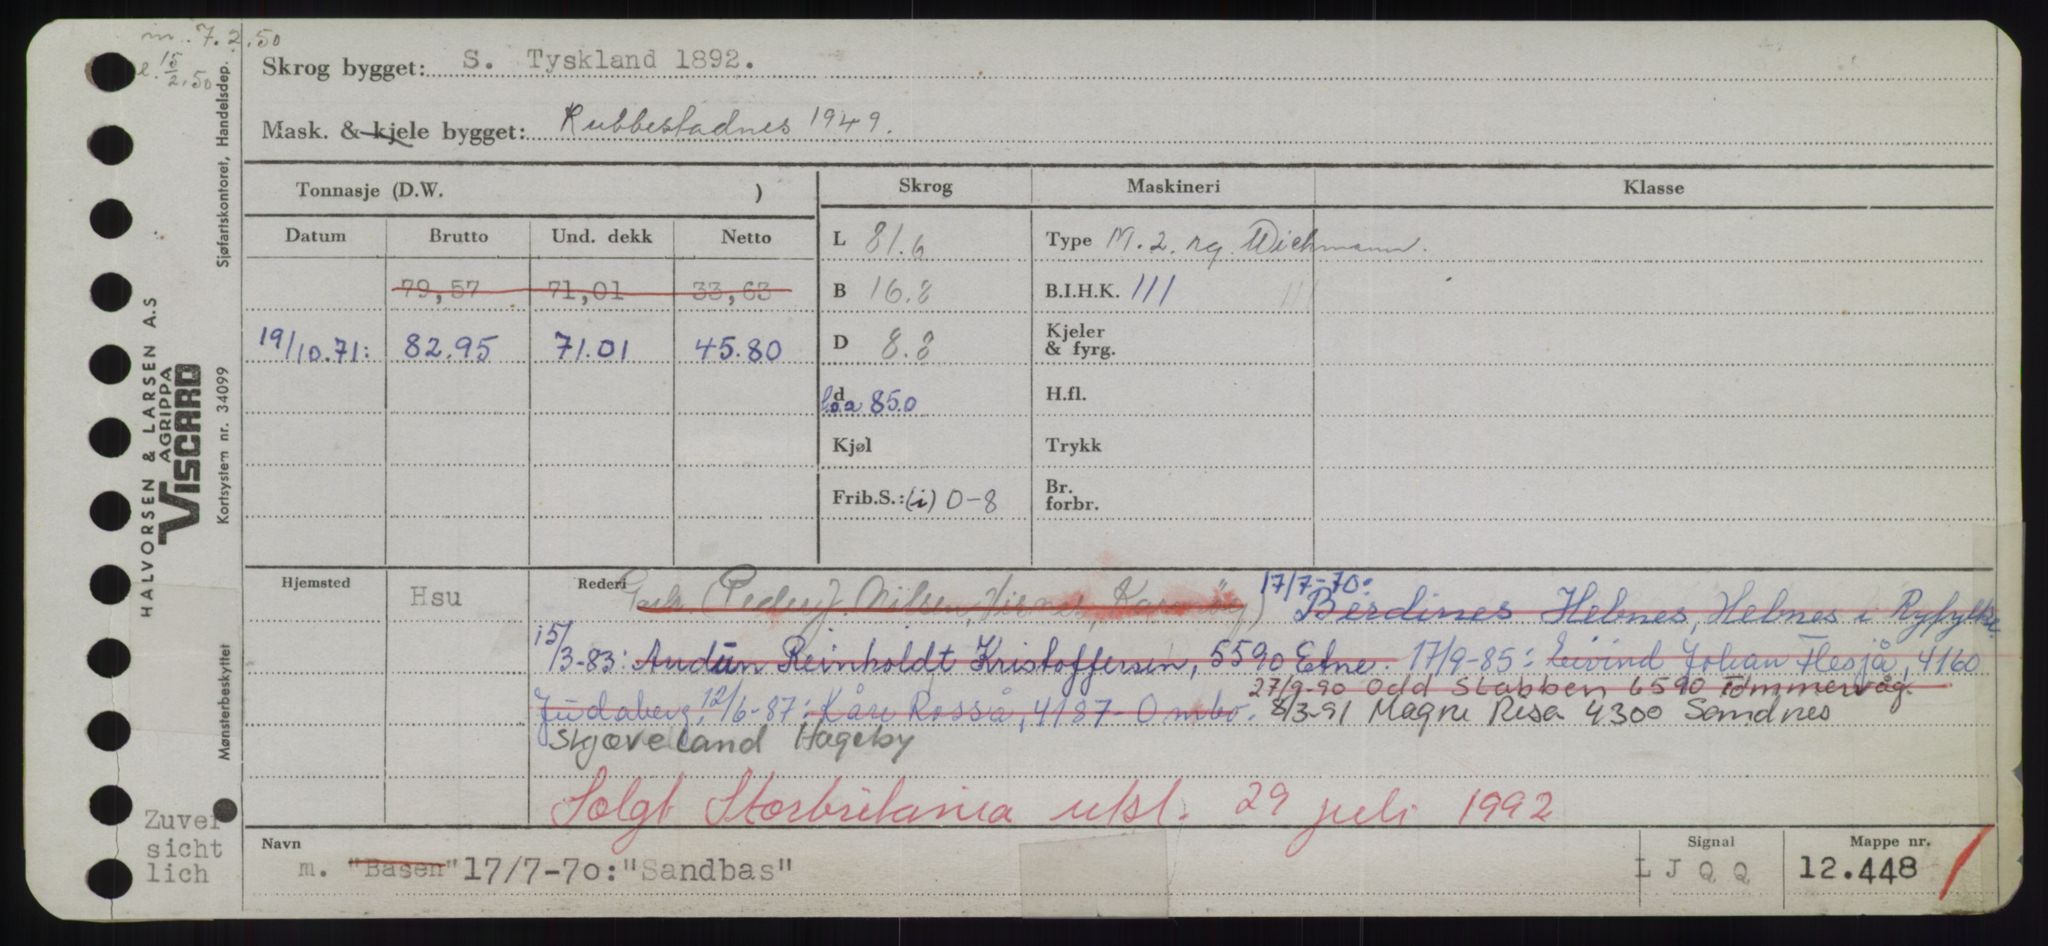 m. 7.2.50
e. 15/2.50
Skrog bygget: S. Tyskland 1892.
Mask. & kjele bygget: Rubbestadnes 1949.
Tonnasje (D.W. ) Skrog Maskineri Klasse
Datum Brutto Und. dekk Netto L 81.6 Type M. 2. rg. Wichmann.
79,57 71,01 33,63 B 16.8 B.I.H.K. 111
19/10.71: 82.95 71.01 45.80 D 8.8 Kjeler & fyrg.
d loa 85.0 H.fl.
Kjøl Trykk
Frib.S.: (i) 0-8 Br. forbr.
Hjemsted Hsu Rederi (Peder J. Nilsen, 17/7-70: Berdines Hebnes, Hebnes i Ryfylke
15/3-83: Audun Reinholdt Kristoffersen, 5590 Etne. 17/9-85: Eivind Johan Flesjå, 4160
Judaberg. 12/6-87: Kåre Rosså, 4187 Ombo. 27/9-90 Odd Stabben 6590 Tømmervåg.
8/3-91 Magne Risa 4300 Sandnes
Skjæveland Hageby
Solgt Storbritania utsl. 29 juli 1992
Navn Signal Mappe nr.
m. "Basen" 17/7-70: "Sandbas" L J Q Q 12.448
Zuver
sicht
lich
HALVORSEN & LARSEN A.S
AGRIPPA
VISCARD
Sjøfartskontoret, Handelsdep.
Kortsystem nr. 34099
Mønsterbeskyttet